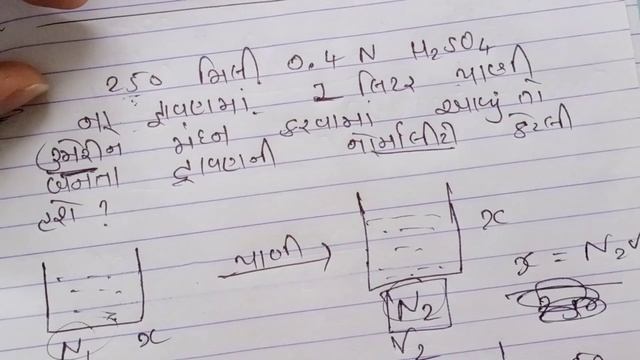 250 મિલી 0.4 N H₂SO₄
ના દ્રાવણમાં 1 લિટર પાણી
ઉમેરીને મંદન કરવામાં આવ્યું તો
બનતા દ્રાવણની નોર્માલિટી કેટલી
હશે ?
પાણી
x
x = N₂V
N₂
N₁ x
V₂